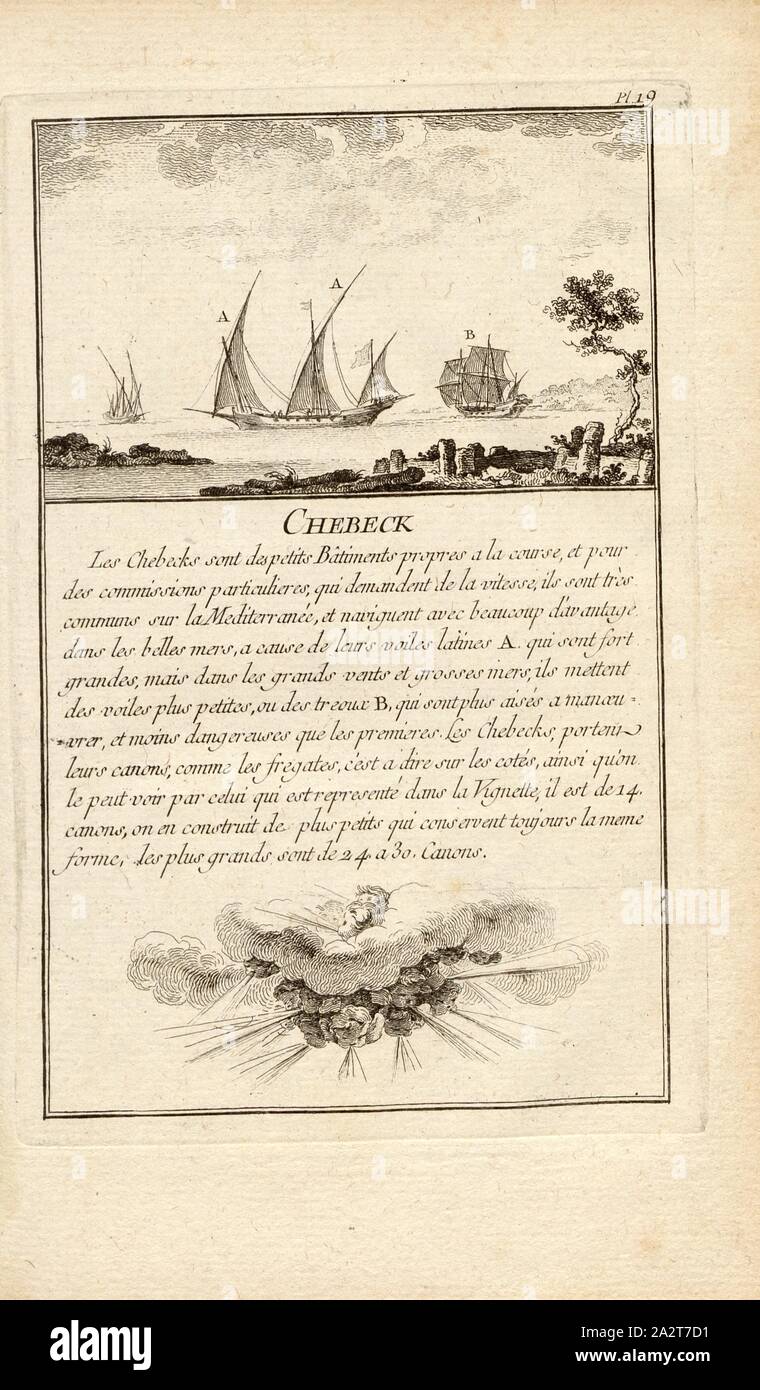 Pl. 19
A
A
B
CHEBECK
Les Chebecks sont des petits Bâtiments propres a la course, et pour
des commissions particulieres, qui demandent de la vitesse, ils sont très
communs sur la Mediterranée, et naviguent avec beaucoup d'avantage
dans les belles mers, a cause de leurs voiles latines A. qui sont fort
grandes, mais dans les grands vents et grosses mers, ils mettent
des voiles plus petites, ou des treoux B, qui sont plus aisés a manœu=
=vrer, et moins dangereuses que les premieres. Les Chebecks, portent
leurs canons, comme les fregates, c'est a dire sur les cotés, ainsi qu'on
le peut voir par celui qui est representé dans la Vignette, il est de 14.
canons, on en construit de plus petits qui conservent toujours la meme
forme, les plus grands sont de 24 a 30. Canons.
alamy
alamy
Image ID: 2A2T7D1
www.alamy.com